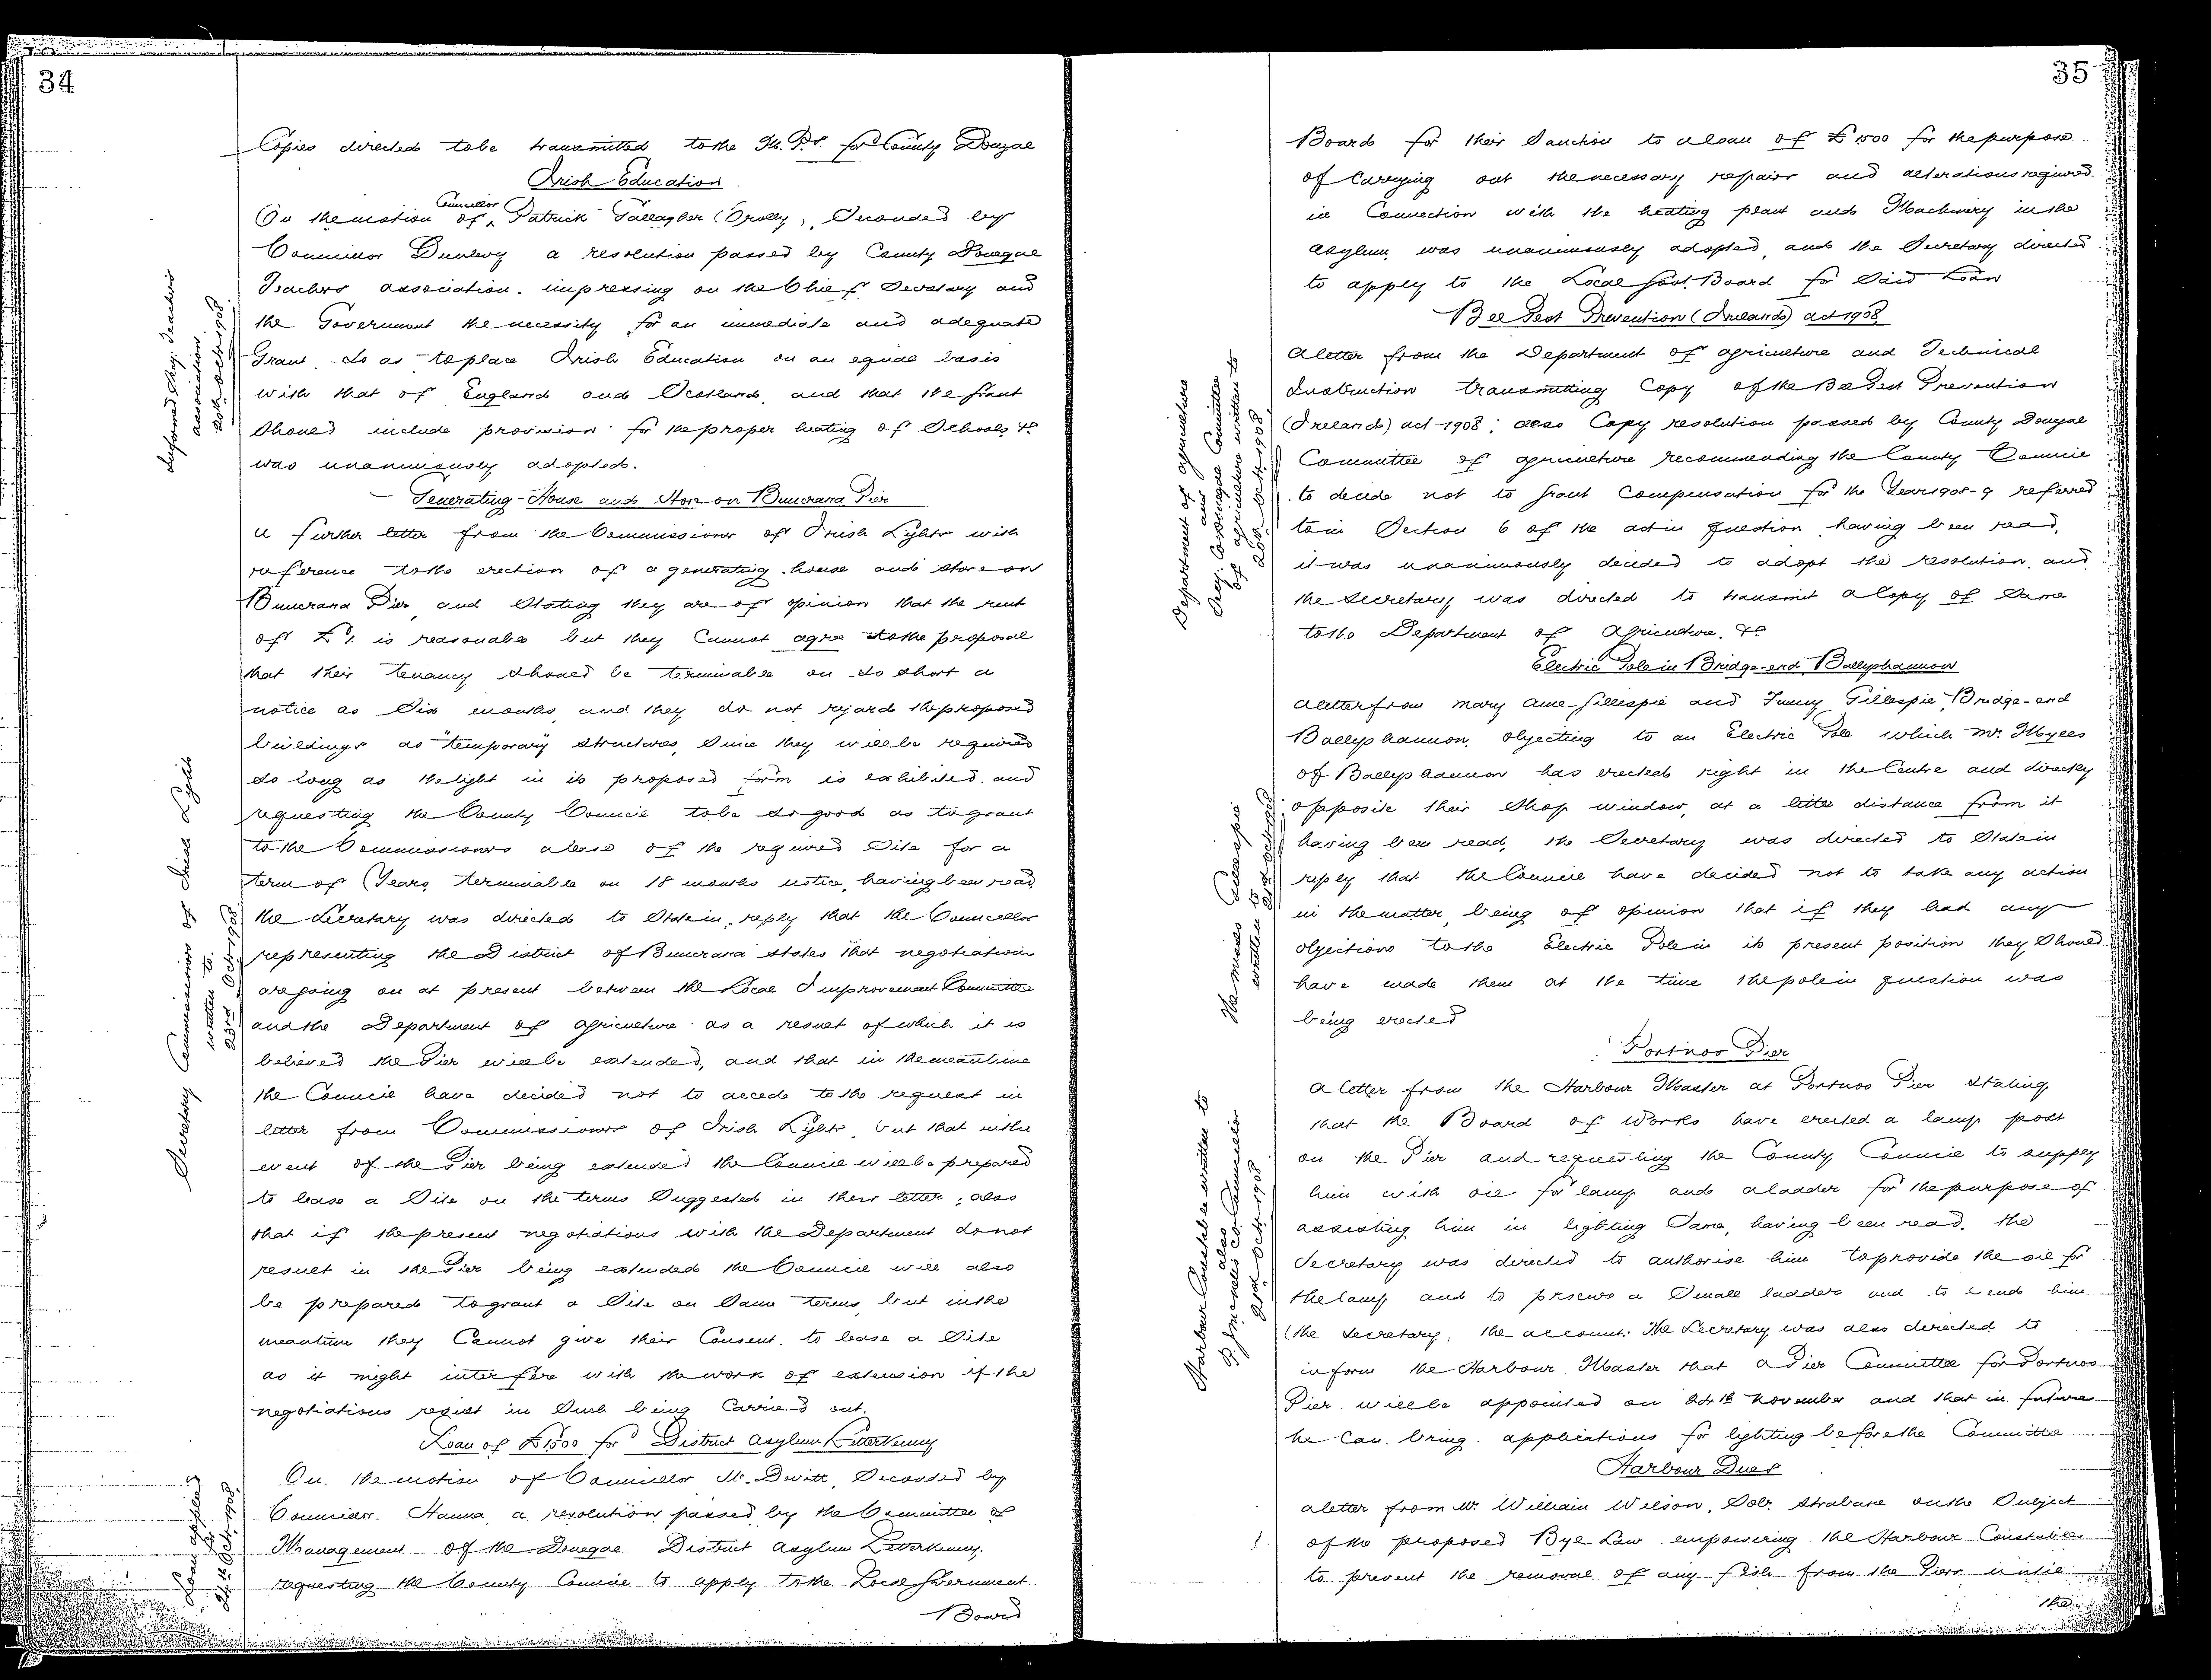 34
Copies directed to be transmitted to the M.Ps. for County Donegal
Irish Education
On the motion of Councillor Patrick Gallagher (Crolly), Seconded by
Councillor Dunlevy a resolution passed by County Donegal
Teachers association impressing on the Chief Secretary and
the Government the necessity for an immediate and adequate
Grant so as to place Irish Education on an equal basis
with that of England and Scotland, and that the Grant
should include provision for the proper heating of Schools &c
was unanimously adopted.
Informed Secy. Teachers
association
20th Oct. 1908
Generating-House and Store on Buncrana Pier
a further letter from the Commissioners of Irish Lights with
reference to the erection of a generating house and store on
Buncrana Pier, and Stating they are of opinion that the rent
of £1. is reasonable but they Cannot agree to the proposal
that their tenancy should be terminable on so short a
notice as Six months and they do not regard the proposed
buildings as "temporary" structures, Since they will be required
so long as the light in its proposed form is exhibited, and
requesting the County Council to be so good as to grant
to the Commissioners a lease of the required Site for a
term of Years, terminable on 18 months notice, having been read,
the Secretary was directed to State in reply that the Councillor
representing the District of Buncrana states that negotiations
are going on at present between the Local Improvement Committee
and the Department of Agriculture as a result of which it is
believed the Pier will be extended, and that in the meantime
the Council have decided not to accede to the request in
letter from Commissioners of Irish Lights, but that in the
event of the Pier being extended the Council will be prepared
to lease a Site on the terms Suggested in their letter; also
that if the present negotiations with the Department do not
result in the Pier being extended the Council will also
be prepared to grant a Site on Same terms, but in the
meantime they Cannot give their Consent to lease a Site
as it might interfere with the work of extension if the
negotiations result in Such being Carried out.
Secretary Commissioners of Irish Lights
written to
23rd Oct. 1908
Loan of £1500 for District Asylum Letterkenny
On the motion of Councillor McDevitt, Seconded by
Councillor Hanna, a resolution passed by the Committee of
Management of the Donegal District Asylum Letterkenny,
requesting the County Council to apply to the Local Government
Board
Loan applied
for
Oct. 1908
35
Board for their Sanction to a loan of £1500 for the purpose
of Carrying out the necessary repairs and alterations required
in Connection with the heating plant and Machinery in the
Asylum, was unanimously adopted, and the Secretary directed
to apply to the Local Govt. Board for Said Loan
Bee Pest Prevention (Ireland) act 1908
A letter from the Department of agriculture and Technical
Instruction transmitting Copy of the Bee Pest Prevention
(Ireland) act 1908; also Copy resolution passed by County Donegal
Committee of agriculture recommending the County Council
to decide not to grant Compensation for the Year 1908-9 referred
to in Section 6 of the act in question, having been read,
it was unanimously decided to adopt the resolution, and
the Secretary was directed to transmit a Copy of Same
to the Department of Agriculture. &c
Department of agriculture
and
Secy. Co. Donegal Committee
of agriculture written to
20th Oct. 1908
Electric Pole in Bridge-end Ballyshannon
a letter from Mary Anne Gillespie and Fanny Gillespie, Bridge-end
Ballyshannon, objecting to an Electric Pole which Mr. Myles
of Ballyshannon has erected right in the Centre and directly
opposite their Shop window, at a little distance from it
having been read, the Secretary was directed to State in
reply that the Council have decided not to take any action
in the matter, being of opinion that if they had any
objections to the Electric Pole in its present position they Should
have made them at the time the pole in question was
being erected
The Misses Gillespie
written to
21st Oct. 1908
Portnoo Pier
a letter from the Harbour Master at Portnoo Pier Stating
that the Board of Works have erected a lamp post
on the Pier and requesting the County Council to supply
him with oil for lamp and a ladder for the purpose of
assisting him in lighting Same, having been read, the
Secretary was directed to authorise him to provide the oil for
the lamp and to procure a Small ladder and to send him
(the Secretary, the account. The Secretary was also directed to
inform the Harbour Master that a Pier Committee for Portnoo
Pier will be appointed on 24th November and that in future
he Can bring applications for lighting before the Committee
Harbour Constable written to
also
Co. Councillor
21st Oct. 1908
Harbour Dues
a letter from Mr. William Wilson, Solr. Strabane on the Subject
of the proposed Bye Law empowering the Harbour Constables
to prevent the removal of any fish from the Piers until
the